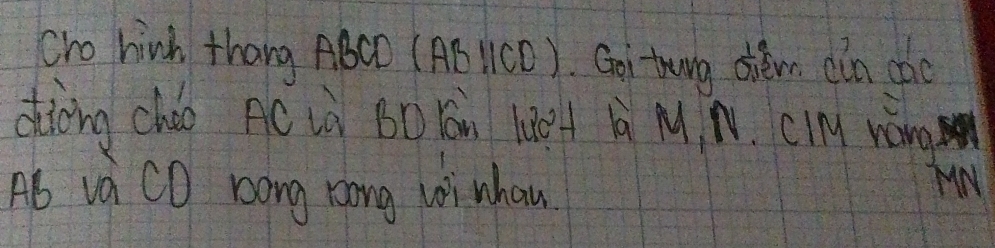 Cho hình thang ABCD (AB//CD). Gọi trung điểm của các
đường chéo AC và BD lần lượt là M, N. C/M rằng MN
AB và CD song song với nhau.